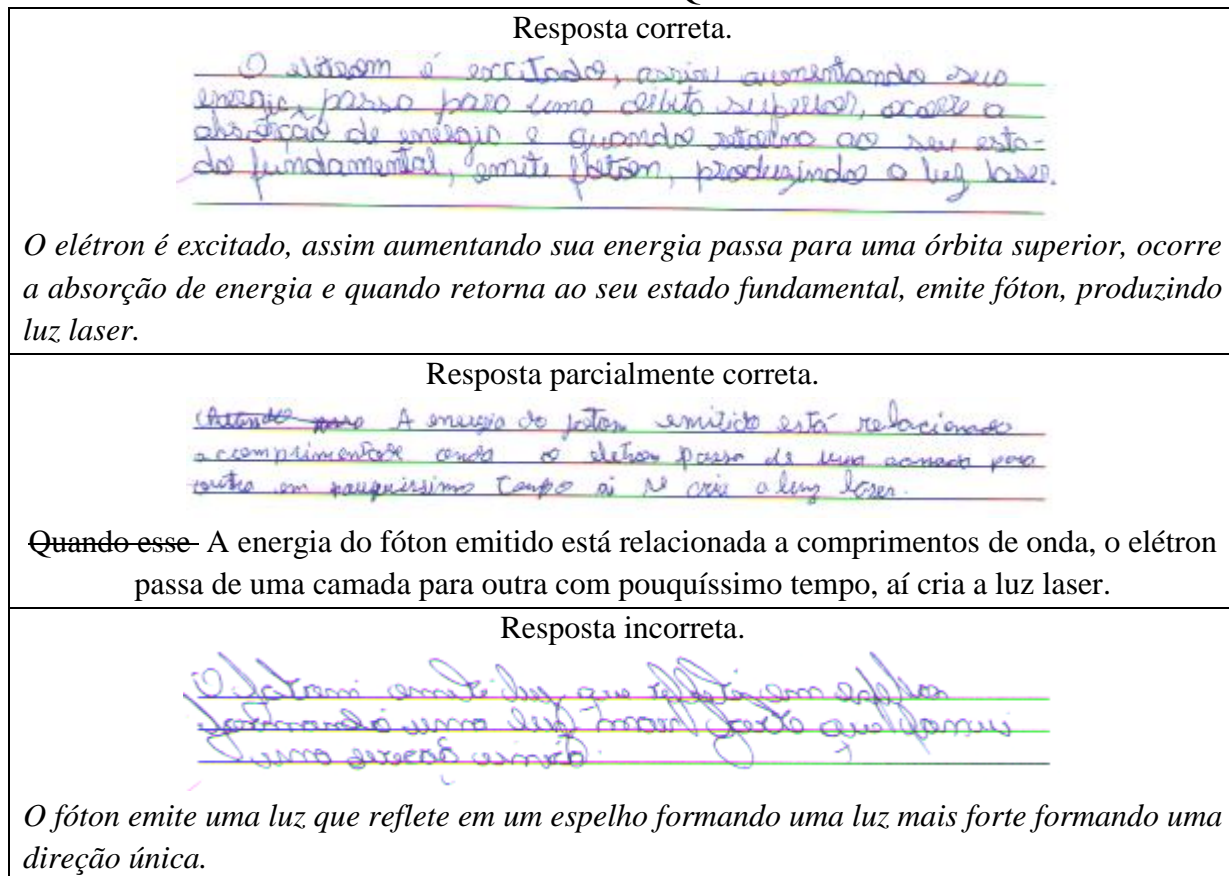 Resposta correta.
O elétrom é excitado, assim aumentando sua
energia, passa para uma órbita superior, ocorre a
absorção de energia e quando retorna ao seu esta-
do fundamental, emite fóton, produzindo a luz laser.
O elétron é excitado, assim aumentando sua energia passa para uma órbita superior, ocorre
a absorção de energia e quando retorna ao seu estado fundamental, emite fóton, produzindo
luz laser.
Resposta parcialmente correta.
A energia do foton emitido está relacionado
a comprimentos de onda o eletron passa de uma camada para
outra em pouquissimo tempo ai se cria a luz laser.
Quando esse A energia do fóton emitido está relacionada a comprimentos de onda, o elétron
passa de uma camada para outra com pouquíssimo tempo, aí cria a luz laser.
Resposta incorreta.
O emite luz que em
formando uma luz mais forte que
uma
O fóton emite uma luz que reflete em um espelho formando uma luz mais forte formando uma
direção única.